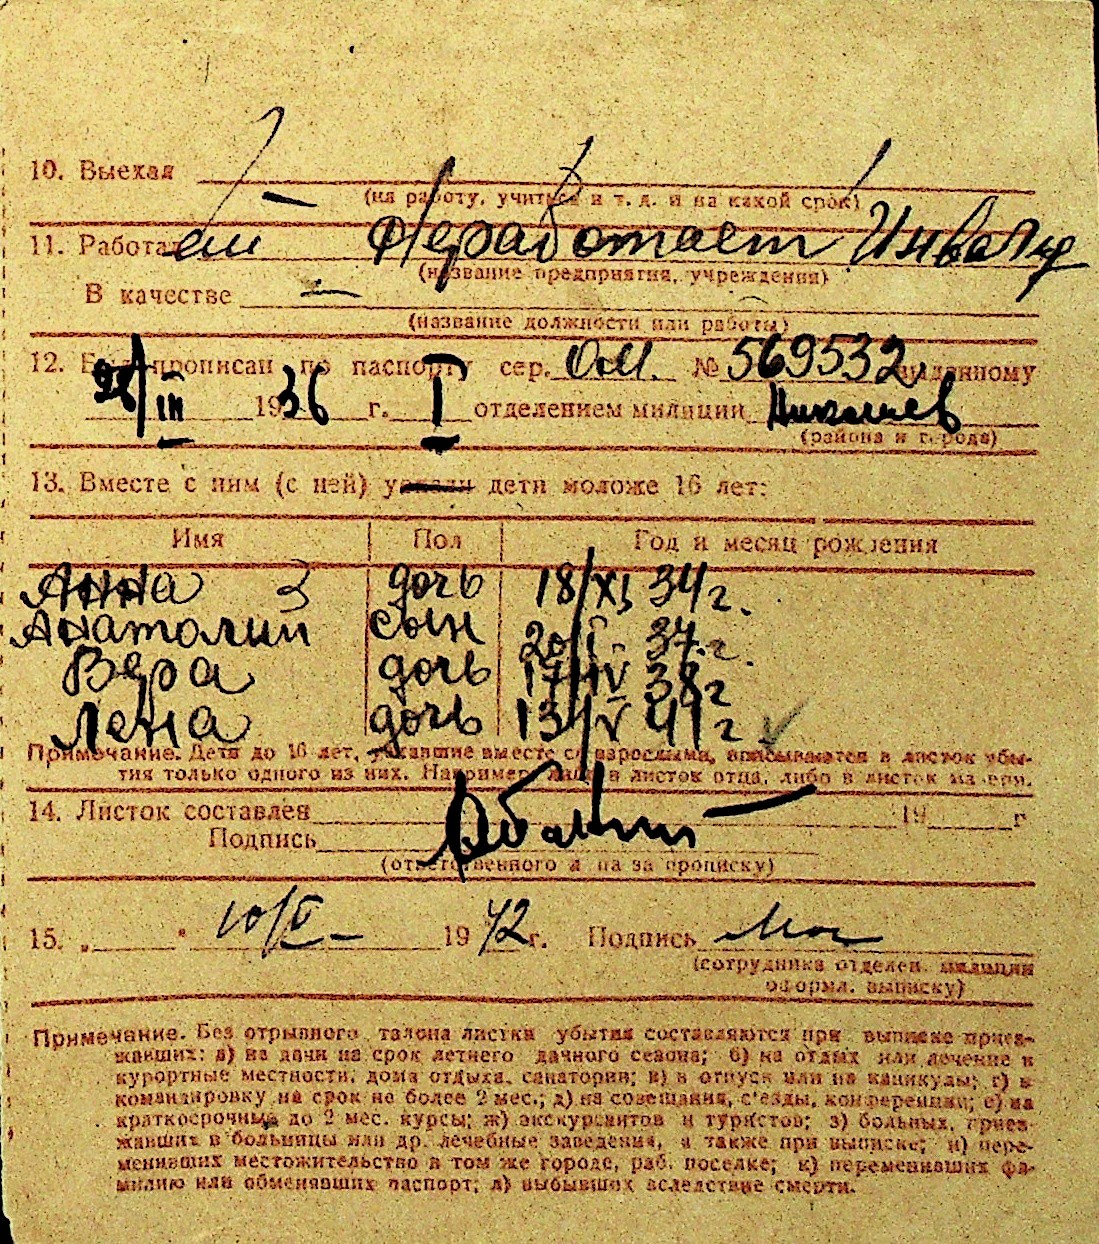 10. Выехал —
(на работу, учиться и т. д. и на какой срок)
11. Работал Неработает Инвалид
(название предприятия, учреждения)
В качестве —
(название должности или работы)
12. Был прописан по паспорту сер. ОМ. № 569532 выданному
28/III 1936 г. I отделением милиции Николаев
(района и города)
13. Вместе с ним (с ней) уехали дети моложе 16 лет:
Имя Пол Год и месяц рождения
Анна дочь 18/XI 34 г.
Анатолий сын 20/I. 37 г.
Вера дочь 17/IV 38 г
Лена дочь 13/V 41 г
Примечание. Дети до 16 лет, уехавшие вместе со взрослыми, вписываются в листок убы-
тия только одного из них. Например, либо в листок отца, либо в листок матери.
14. Листок составлен 19 г
Подпись
(ответственного лица за прописку)
15. „ " 10/V 1942 г. Подпись
(сотрудника отделен. милиции
оформл. выписку)
Примечание. Без отрывного талона листки убытия составляются при выписке приез-
жавших: а) на дачи на срок летнего дачного сезона; б) на отдых или лечение в
курортные местности, дома отдыха, санатории; в) в отпуск или на каникулы; г) в
командировку на срок не более 2 мес.; д) на совещания, с'езды, конференции; е) на
краткосрочные до 2 мес. курсы; ж) экскурсантов и туристов; з) больных, приез-
жавших в больницы или др. лечебные заведения, а также при выписке; и) пере-
менивших местожительство в том же городе, раб. поселке; к) переменивших фа-
милию или обменявших паспорт; л) выбывших вследствие смерти.